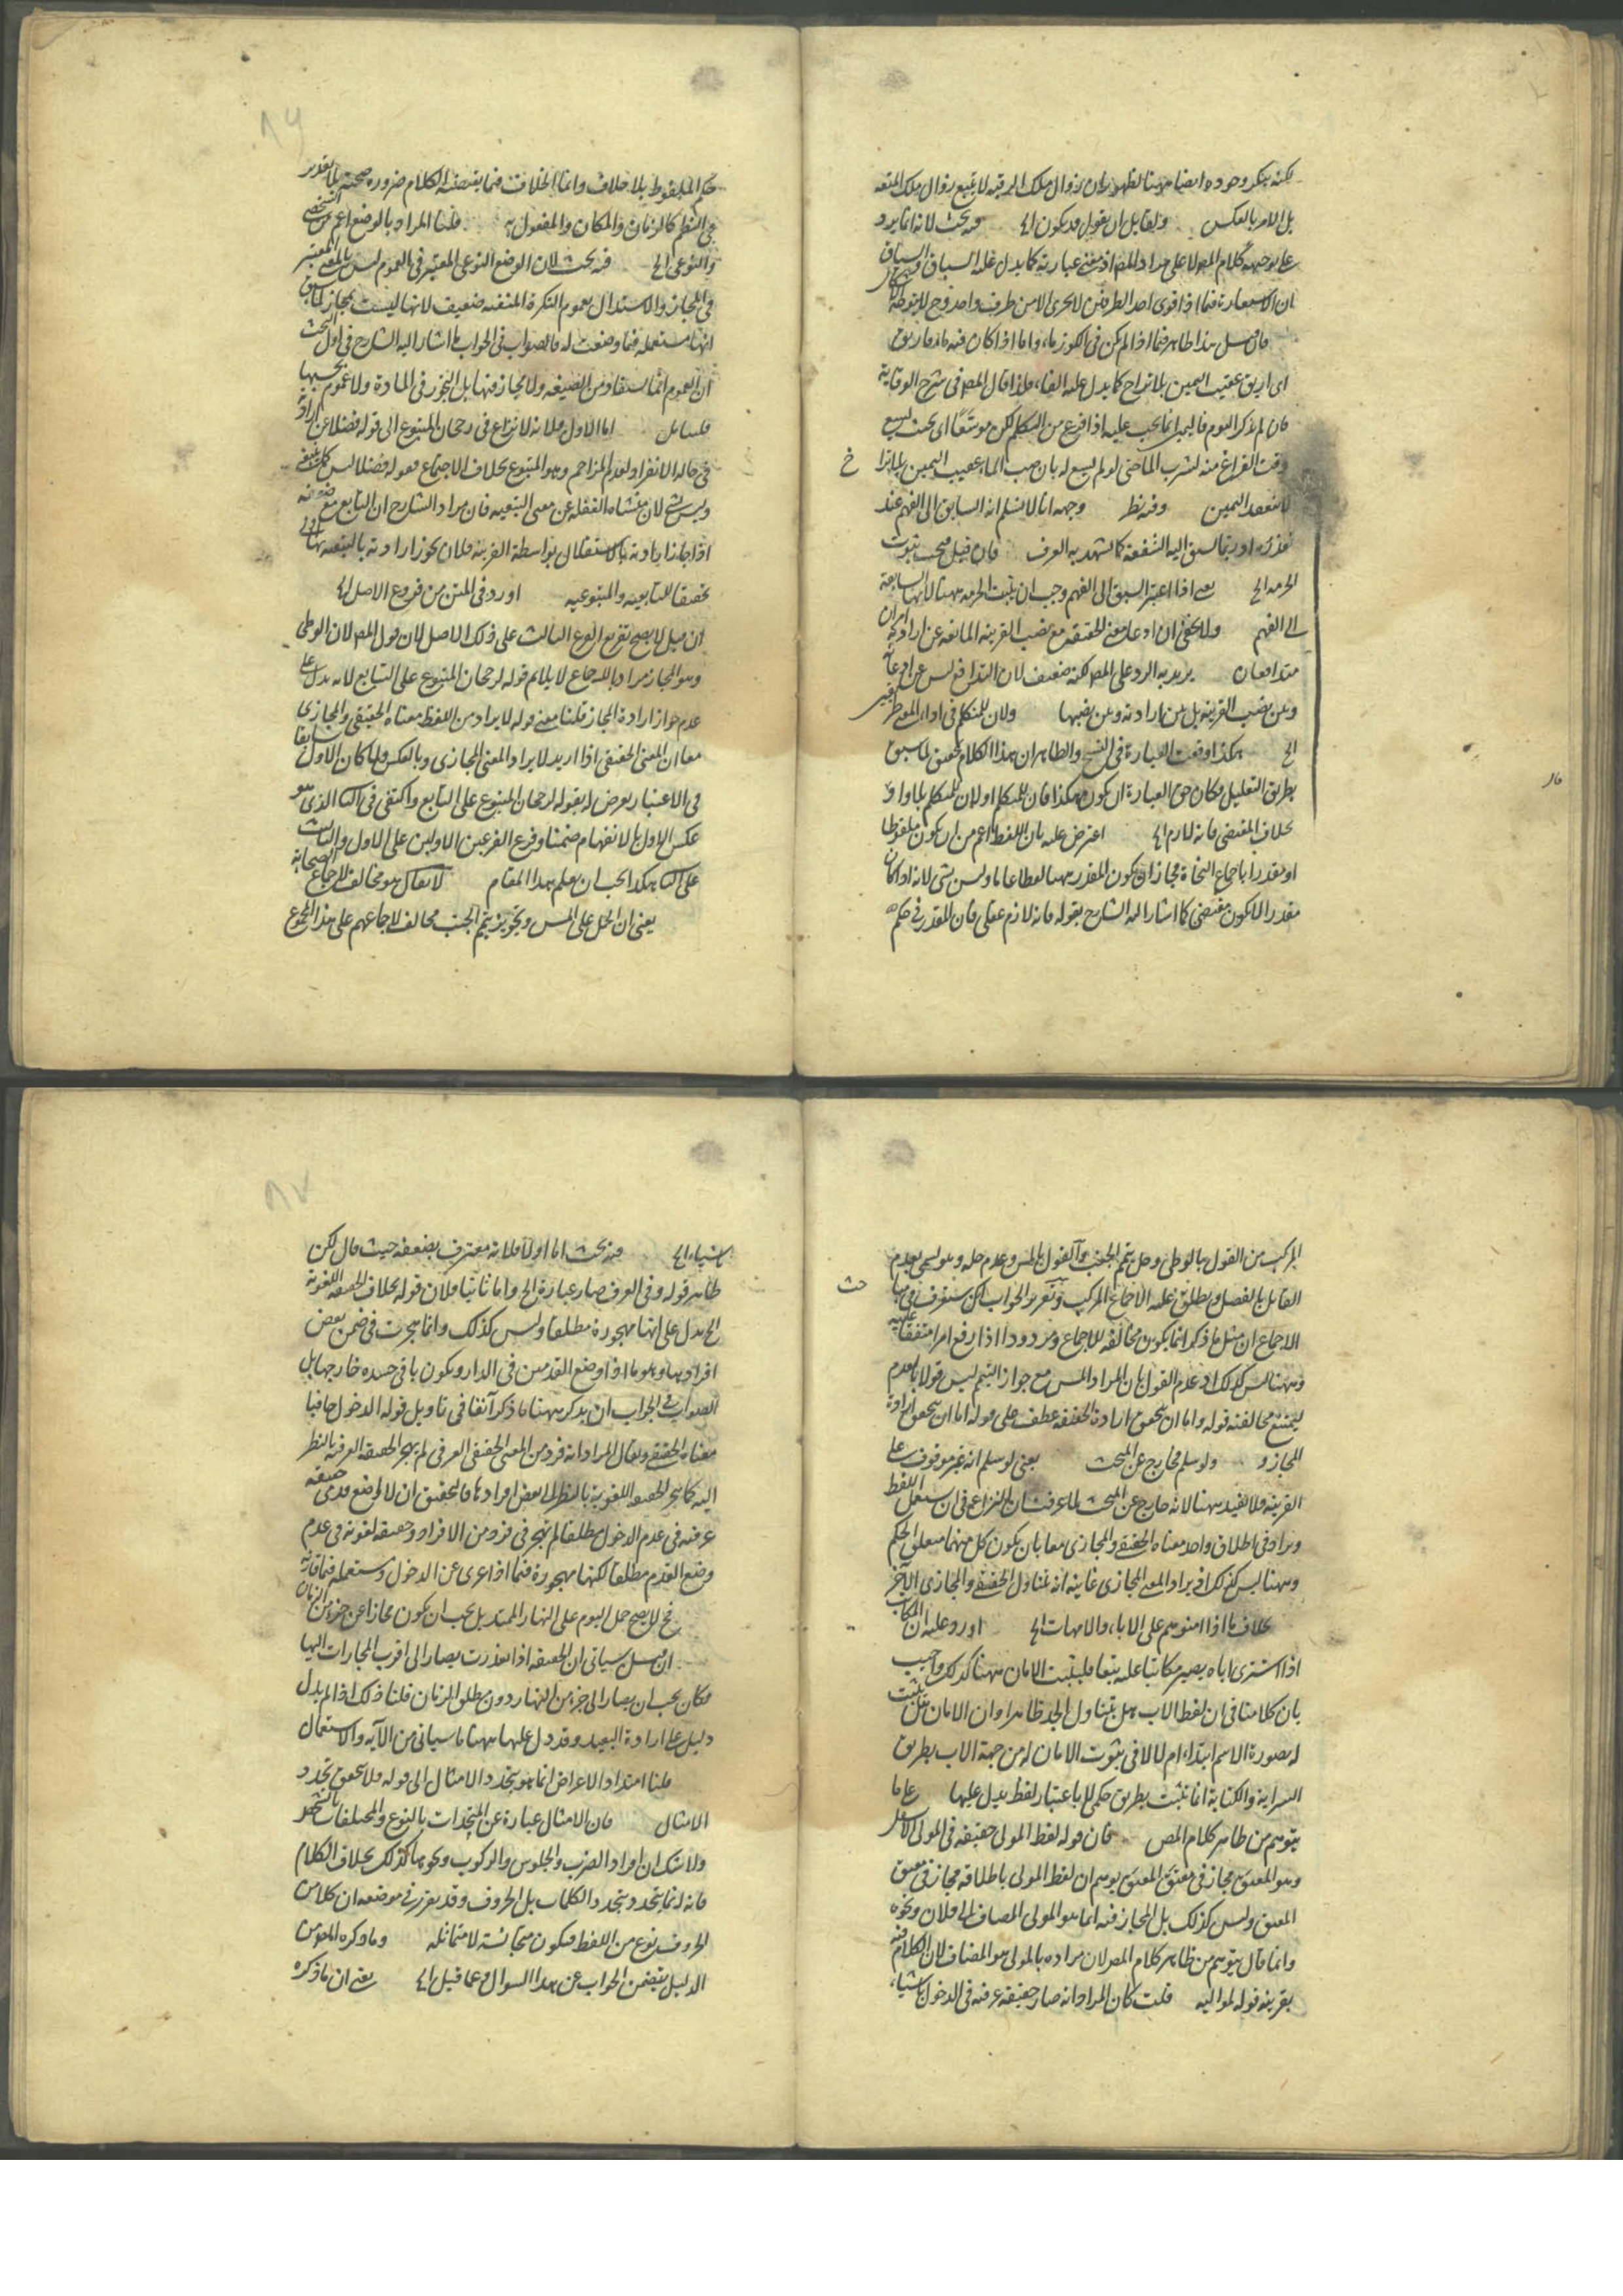 لكنه ينكر وجوده ايضا ههنا لظهور ان زوال ملك الرقبة لا يتبع زوال ملك المتعة
بل الامر بالعكس ولقايل ان يقول قد يكون الخ فيه بحث لانه انما يرد
على توجيهه كلام المص لا على مراد المص اذ معنى عبارته كما يدل عليه السباق
ان الاستعارة فيما اذا قوى احد الطرفين لا يجرى الا من طرف واحد وح لا يتوجه
فان قيل هذا ظاهر فيما اذا لم يكن فى الكوز ماء واما اذا كان فيه ماء فاريق
اى اريق عقيب اليمين بلا تراخ كما يدل عليه الفاء ولذا قال المص فى شرح الوقاية
فان لم يذكر اليوم فالبر انما يجب عليه اذا فرغ من التكلم لكن موسعا اى بحيث يسع
وقت الفراغ منه لشرب الماء حتى لو لم يسع له بان صب الماء عقيب اليمين بلا تراخ
لا ينعقد اليمين وفيه نظر وجهه انا لا نسلم انه السابق الى الفهم عند
تعذره او ربما لسبق اليه الشفقة كما يشهد به العرف فان قيل فيجب ثبوت
الحرمة الخ يعنى اذا اعتبر السبق الى الفهم وجب ان يثبت الحرمة ههنا لانها السابقة
الى الفهم ولا يخفى ان ادعاء معنى الحقيقة مع نصب القرينة المانعة عن ارادته
متدافعان يريد به الرد على المص لكنه ضعيف لان التدافع ليس بين ادعائه
وبين نصب القرينة بل بين ارادته وبين نصبها ولان للمتكلم فى اداء المعنى
الخ هكذا وقعت العبارة فى النسخ والظاهر ان هذا الكلام تحقيق لما سبق
بطريق التعليل فكان حق العبارة ان يكون هكذا فان للمتكلم او لان للمتكلم بلا واو
بخلاف المقتضى فانه لازم الخ اعترض عليه بان اللفظ اعم من ان يكون ملفوظا
او مقدرا باجماع النحاة فجاز ان يكون المقدر ههنا لفظا عاما وليس بشى لانه اذا كان
مقدرا لا يكون مقتضى كما اشار اليه الشارح بقوله فانه لازم عقلى فان المقدر فى حكم
حكم الملفوظ بلا خلاف وانما الخلاف فيما يقتضيه الكلام ضرورة صحته بلا تقدير
فى النظم كالزمان والمكان والمفعول به قلنا المراد بالوضع اعم من الشخصى
والنوعى الخ فيه بحث لان الوضع النوعى المعتبر فى العموم ليس بالمعنى المعتبر
فى المجاز والاستدلال بعموم النكرة المنفية ضعيف لانها ليست بمجاز لما سبق
انها مستعملة فيما وضعت له فالصواب فى الجواب ما اشار اليه الشارح فى اول البحث
ان العموم انما يستفاد من الصيغة ولا مجاز فيها بل التجوز فى المادة ولا عموم بحسبها
اما الاول فلانه لا نزاع فى رجحان المتبوع الى قوله فضلا عن ارادته
فى حالة الانفراد لعدم المزاحم وهو المتبوع بخلاف الاجتماع فقوله فضلا ليس كما ينبغى
وليس بشى لان منشاه الغفلة عن معنى التبعية فان مراد الشارح ان التابع مع ضعفه
اذا جاز ارادته بالاستقلال بواسطة القرينة فلان يجوز ارادته بالتبعية اولى
تحقيقا للتابعية والمتبوعية اورد فى المتن من فروع الاصل الخ
ان قيل لا يصح تفريع الفرع الثالث على ذلك الاصل لان قول المص لان الوطى
وهو المجاز مراد بالاجماع لا يلائم قوله لرجحان المتبوع على التابع لانه يدل على
عدم جواز ارادة المجاز قلنا معنى قوله لا يراد من اللفظ معناه الحقيقى والمجازى
معا ان المعنى الحقيقى اذا اريد لا يراد المعنى المجازى وبالعكس ولما كان الاول
فى الاعتبار تعرض له بقوله لرجحان المتبوع على التابع واكتفى فى الثانى الذى هو
عكس الاول بالانفهام ضمنا وفرع الفرعين الاولين على الاول والثالث
على الثانى هكذا يجب ان يعلم هذا المقام لا يقال هو مخالف لاجماع الصحابة
يعنى ان الحمل على المس وتجويز تيمم الجنب مخالف لاجماعهم على هذا المجموع
المركب من القول بالوطى وحل تيمم الجنب والقول بالمس وعدم حله وهو يسمى بعدم
القايل بالفصل ويطلق عليه الاجماع المركب وتقرير الجواب انك ستعرف فى باب
الاجماع ان مثل ما ذكر انما يكون مخالفة للاجماع ومردودا اذا رفع امرا متفقا عليه
وههنا ليس كذلك اذ عدم القول بان المراد المس مع جواز التيمم ليس قولا بالعدم
ليمتنع مخالفته قوله واما ان يتحقق ارادة الحقيقة عطف على قوله اما ان يتحقق ارادة
المجاز ولو سلم فخارج عن المبحث يعنى لو سلم انه غير موقوف على
القرينة فلا يفيد ههنا لانه خارج عن المبحث لما عرفت ان النزاع فى ان يستعمل اللفظ
ويراد فى اطلاق واحد معناه الحقيقى والمجازى معا بان يكون كل منهما متعلق الحكم
وههنا ليس كذلك اذ يراد المعنى المجازى غايته انه يتناول الحقيقى والمجازى الآخر
بخلاف ما اذا امنوهم على الاباء والامهات الخ اورد عليه ان المكاتب
اذا اشترى اباه يصير مكاتبا عليه تبعا فليثبت الامان ههنا كذلك واجيب
بان كلامنا فى ان لفظ الاب هل يتناول الجد ظاهرا وان الامان هل يثبت
له بصورة الاسم ابتداء ام لا لا فى ثبوت الامان له من جهة الاب بطريق
السراية والكتابة انما تثبت بطريق حكمى لا باعتبار لفظ يدل عليها على ما
يتوهم من ظاهر كلام المص فان قوله لفظ المولى حقيقة فى المولى الاسفل
وهو المعتق مجاز فى معتق المعتق يوهم ان لفظ المولى باطلاقه مجاز فى معتق
المعتق وليس كذلك بل المجاز فيه انما هو المولى المضاف الى فلان ونحوه
وانما قال يتوهم من ظاهر كلام المص لان مراده بالمولى هو المضاف لان الكلام فيه
بقرينة قوله لمواليه قلت كان المراد انه صار حقيقة عرفية فى الدخول
الخ فيه بحث اما اولا فلانه معترف بضعفه حيث قال لكن
ظاهر قوله وفى العرف صار عبارة الخ واما ثانيا فلان قوله بخلاف الحقيقة اللغوية
الخ يدل على انها مهجورة مطلقا وليس كذلك وانما هجرت فى ضمن بعض
افرادها وهو ما اذا وضع القدمين فى الدار ويكون باقى جسده خارجها بل
الصواب فى الجواب ان يذكر ههنا ما ذكر آنفا فى تاويل قوله الدخول حافيا
معناه الحقيقى ويقال المراد انه فرد من المعنى الحقيقى العرفى لم يهجر الحقيقة العرفية بالنظر
اليه كما هجر الحقيقة اللغوية بالنظر الى بعض افرادها فالتحقيق ان لا اضع قدمى حقيقة
عرفية فى عدم الدخول مطلقا لم تهجر فى فرد من الافراد وحقيقة لغوية فى عدم
وضع القدم مطلقا لكنها مهجورة فيما اذا عرى عن الدخول ومستعملة فيما قارنه
فح لا يصح حمل اليوم على النهار الممتد بل يجب ان يكون مجازا عن جزء من الزمان
ان قيل سياتى ان الحقيقة اذا تعذرت يصار الى اقرب المجازات اليها
فكان يجب ان يصار الى جزء من النهار دون مطلق الزمان قلنا ذلك اذا لم يدل
دليل على ارادة البعيد وقد دل عليها ههنا ما سياتى من الآية والاستعمال
قلنا امتداد الاعراض انما هو بتجدد الامثال الى قوله فلا يتحقق تجدد
الامثال فان الامثال عبارة عن المتحدات بالنوع والمختلفات بالتشخص
ولا شك ان افراد الضرب والجلوس والركوب ونحوها كذلك بخلاف الكلام
فانه انما يتجدد بتجدد الكلمات بل الحروف وقد تقرر فى موضعه ان كلا من
الحروف نوع من اللفظ فيكون متجانسة لا متماثلة وما ذكره القوم من
الدليل يتضمن الجواب عن هذا السوال وعما قيل الخ يعنى ان ما ذكره